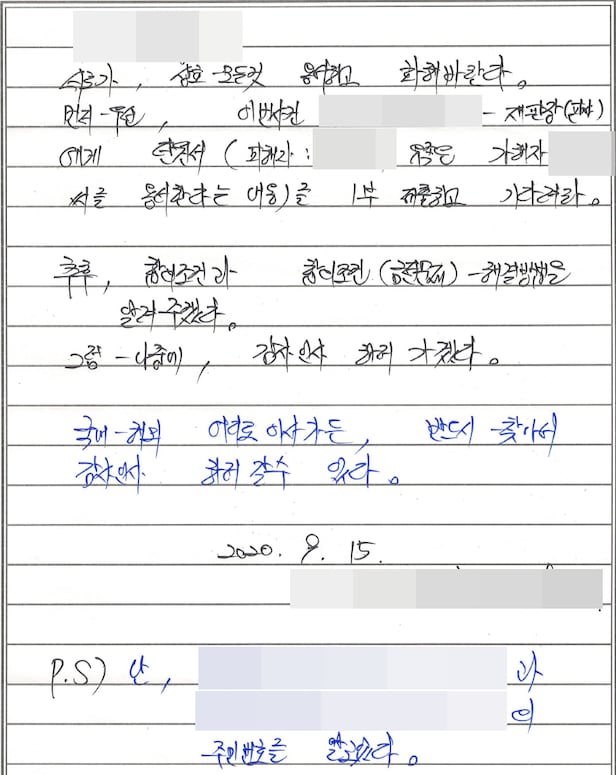 서로가, 상호 모든것 용서하고 화해바란다.
먼저-우선, 이번사건 - 재판장(판사)
에게 탄원서 (피해자: 가해자
씨를 용서한다는 내용)를 1부 제출하고 기다려라.
추후, 합의조건과 합의조건(금전문제)-해결방법을
알려주겠다.
그럼-나중에, 감사인사 하러 가겠다.
국내-해외 어디로 이사가든, 반드시-찾아서
감사인사 하러 갈수 있다.
2020. 9. 15.
P.S) 난, 과
의
주민번호를 알고있다.